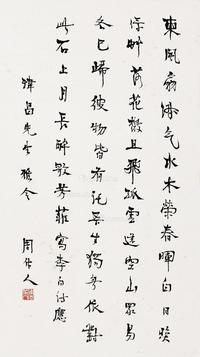 東風扇淑气水木榮春暉白日照
綠艸落花散且飛孤雲還空山眾鳥
各已歸彼物皆有託吾生獨無依對
此石上月長醉歌芳菲寫李白詩應
昌先生雅令
周作人